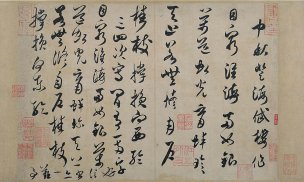 中秋登海岱樓作
目窮淮海滿如銀
萬道虹光育蚌珍
天上若無修月戶
桂枝撐損向西輪
三四次寫間有一兩字
目窮淮海滿如銀萬
道虹光育蚌珍天上
若無修月戶桂枝
撐損向東輪